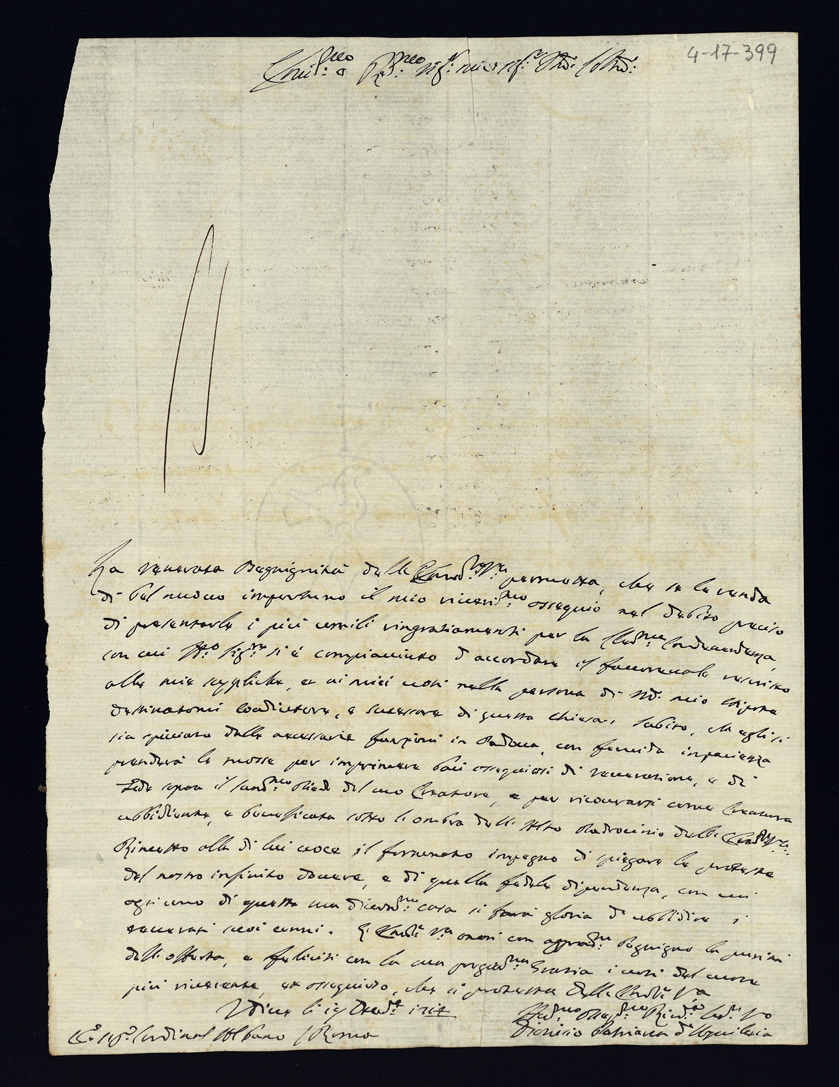 4-17-399
Em.mo e R.mo Sig.r mio Sig.r P.ron Col.mo
La generosa Benignità dell' permetta, che se le renda
di bel nuovo importuno il mio river.mo ossequio nel debito preciso
di presentarle i più umili ringratiamenti per la Clem.ma Condescendenza,
con cui N.ro Sig.re si è compiaciuto d'accordare il favorevole rescritto
alle mie suppliche, et ai miei voti nella persona di mio Nipote
destinatomi Coadiutore, e successore di questa chiesa. Subito, che egli si
sia spicciato dalle necessarie funzioni in Padova, con fervida impacienza
prenderà le mosse per imprimere baci ossequiosi di veneratione, e di
fede sopra il Piede del suo Creatore, e per ricovrarsi come Creatura
ubbidiente, e beneficata sotto l'ombra dell'Alto Padrocinio dell'
Rimetto alla di lui voce il fortunato impegno di spiegare le proteste
del nostro infinito dovere, e di quella fedele dipendenza, con cui
ogn'uno di questa sua casa si farà gloria d'ubbidire i
venerati suoi cenni. L' V.ra onori con benigno
dell'offerta, e feliciti con la sua Grazia i voti del cuore
più riverente, et ossequioso, che si protesta dell' V.ra
Udine li 19 1714
Dionisio Patriarca d'Aquileia
Sig.r Cardinal Albano / Roma